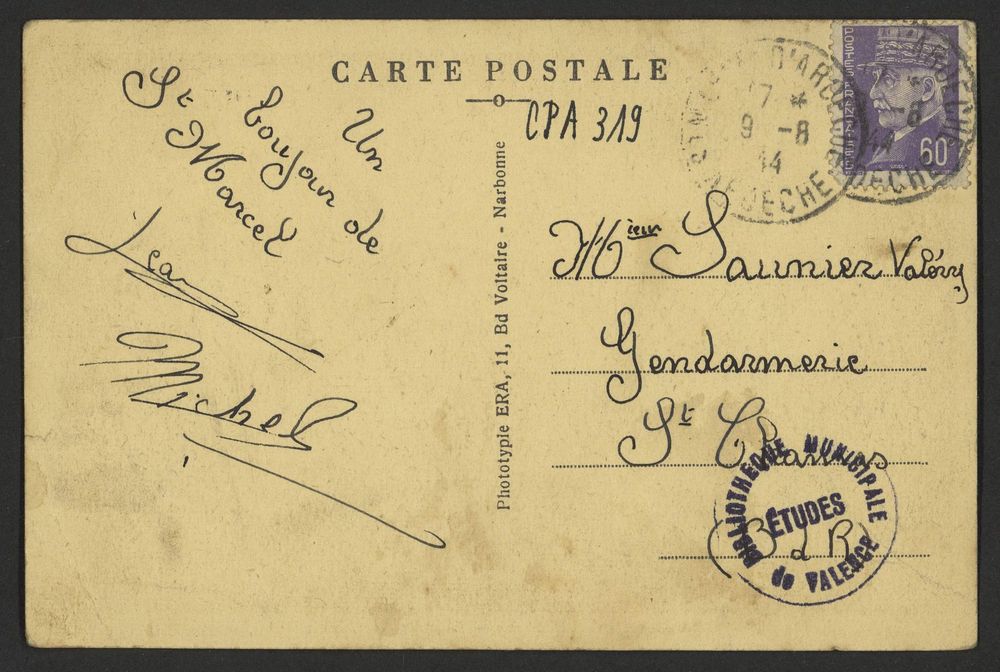 CARTE POSTALE
CPA 319
Un
Bonjour de
St Marcel
Jean
Michel
Phototypie ERA, 11, Bd Voltaire - Narbonne
17 *
9 -8
44
POSTES FRANÇAISES
60
-8
44
Mieur Saunier Valéry
Gendarmerie
St Chamas
(B d R)
BIBLIOTHÈQUE MUNICIPALE
ÉTUDES
de VALENCE